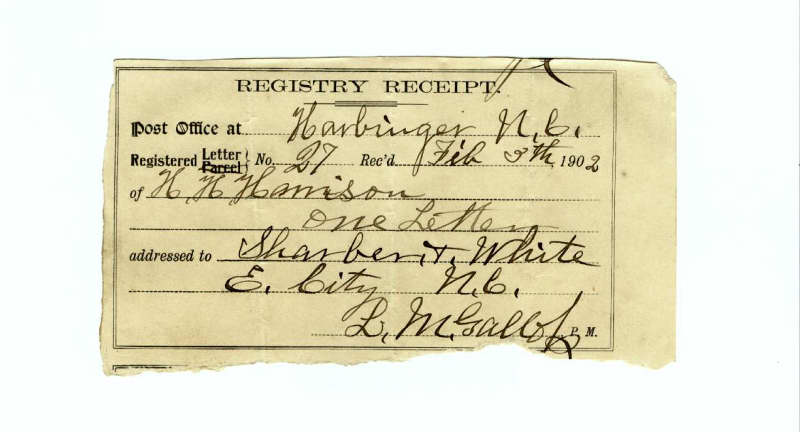 REGISTRY RECEIPT.
Post Office at Harbinger N.C.
Registered Letter Parcel No. 27 Rec'd Feb 3th, 1902
of H. H. Harrison
One Letter
addressed to Sharber & White
E. City N.C.
L. McGallop P. M.